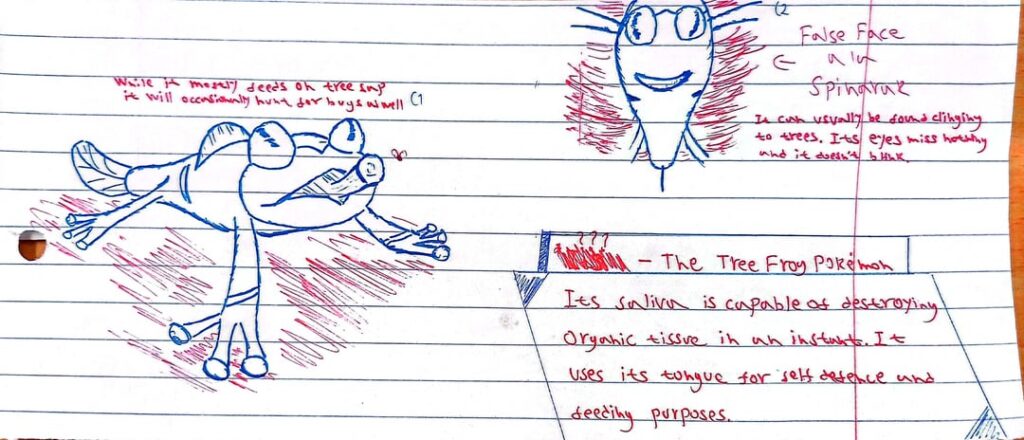 While it mostly feeds on tree sap
it will occasionally hunt for bugs as well (1
(2
False Face
a la
Spinarak
It can usually be found clinging
to trees. Its eyes miss nothing
and it doesn't blink.
???
- The Tree Frog Pokémon
Its saliva is capable of destroying
organic tissue in an instant. It
uses its tongue for self defence and
feeding purposes.